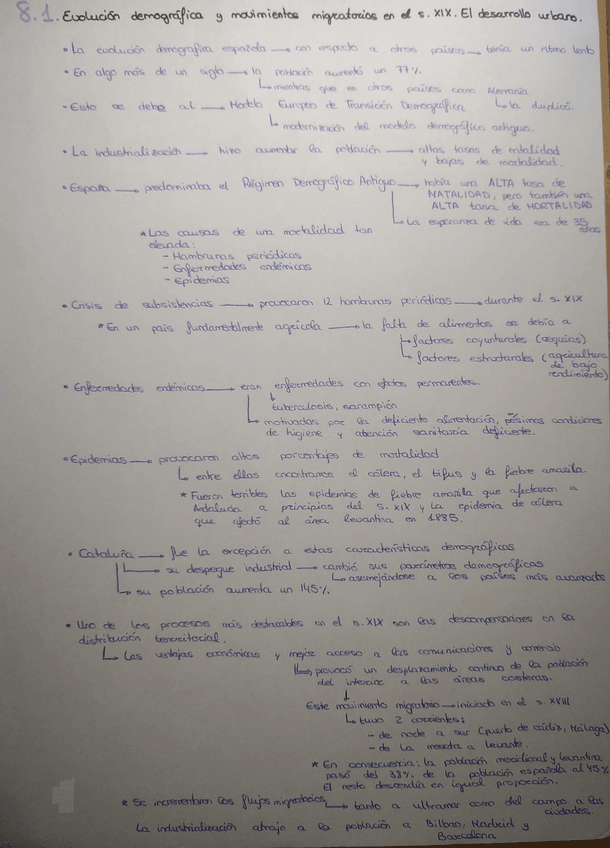 8.1. Evolución demográfica y movimientos migratorios en el s. XIX. El desarrollo urbano.
• La evolución demográfica española → con respecto a otros países → tenía un ritmo lento
• En algo más de un siglo → la población aumentó un 77%.
↳ mientras que en otros países como Alemania
↳ la duplicó.
• Esto se debe al → Modelo Europeo de Transición Demográfica
↳ modernización del modelo demográfico antiguo.
• La industrialización → hizo aumentar la población → altas tasas de natalidad
y bajas de mortalidad.
• España → predominaba el Régimen Demográfico Antiguo → había una ALTA tasa de
NATALIDAD, pero también una
ALTA tasa de MORTALIDAD.
↳ La esperanza de vida era de 35
años
* Las causas de una mortalidad tan
elevada:
- Hambrunas periódicas
- Enfermedades endémicas
- Epidemias
• Crisis de subsistencias → provocaron 12 hambrunas periódicas → durante el s. XIX
* En un país fundamentalmente agrícola → la falta de alimentos se debía a
↳ factores coyunturales (sequías)
↳ factores estructurales (agricultura
de bajo
rendimiento)
• Enfermedades endémicas → eran enfermedades con efectos permanentes.
↓
tuberculosis, sarampión
↳ motivadas por la deficiente alimentación, pésimas condiciones
de higiene y atención sanitaria deficiente.
• Epidemias → provocaron altos porcentajes de mortalidad
↳ entre ellas encontramos el cólera, el tifus y la fiebre amarilla.
* Fueron terribles las epidemias de fiebre amarilla que afectaron a
Andalucía a principios del s. XIX y la epidemia de cólera
que afectó al área levantina en 1885.
• Cataluña → fue la excepción a estas características demográficas
↳ su despegue industrial → cambió sus parámetros demográficos
↳ asemejándose a los países más avanzados
↳ su población aumenta un 145%.
• Uno de los procesos más destacables en el s. XIX son las descompensaciones en la
distribución territorial.
↳ Las ventajas económicas y mejor acceso a las comunicaciones y comercio
↳ provocó un desplazamiento continuo de la población
del interior a las áreas costeras.
↓
Este movimiento migratorio → iniciado en el s. XVIII
↳ tuvo 2 corrientes:
- de norte a sur (puerto de Cádiz, Málaga)
- de la meseta a Levante.
* En consecuencia: la población meridional y levantina
pasó del 33% de la población española al 45%
El resto descendía en igual proporción.
* Se incrementaron los flujos migratorios → tanto a ultramar como del campo a las
ciudades.
La industrialización atrajo a la población a Bilbao, Madrid y
Barcelona